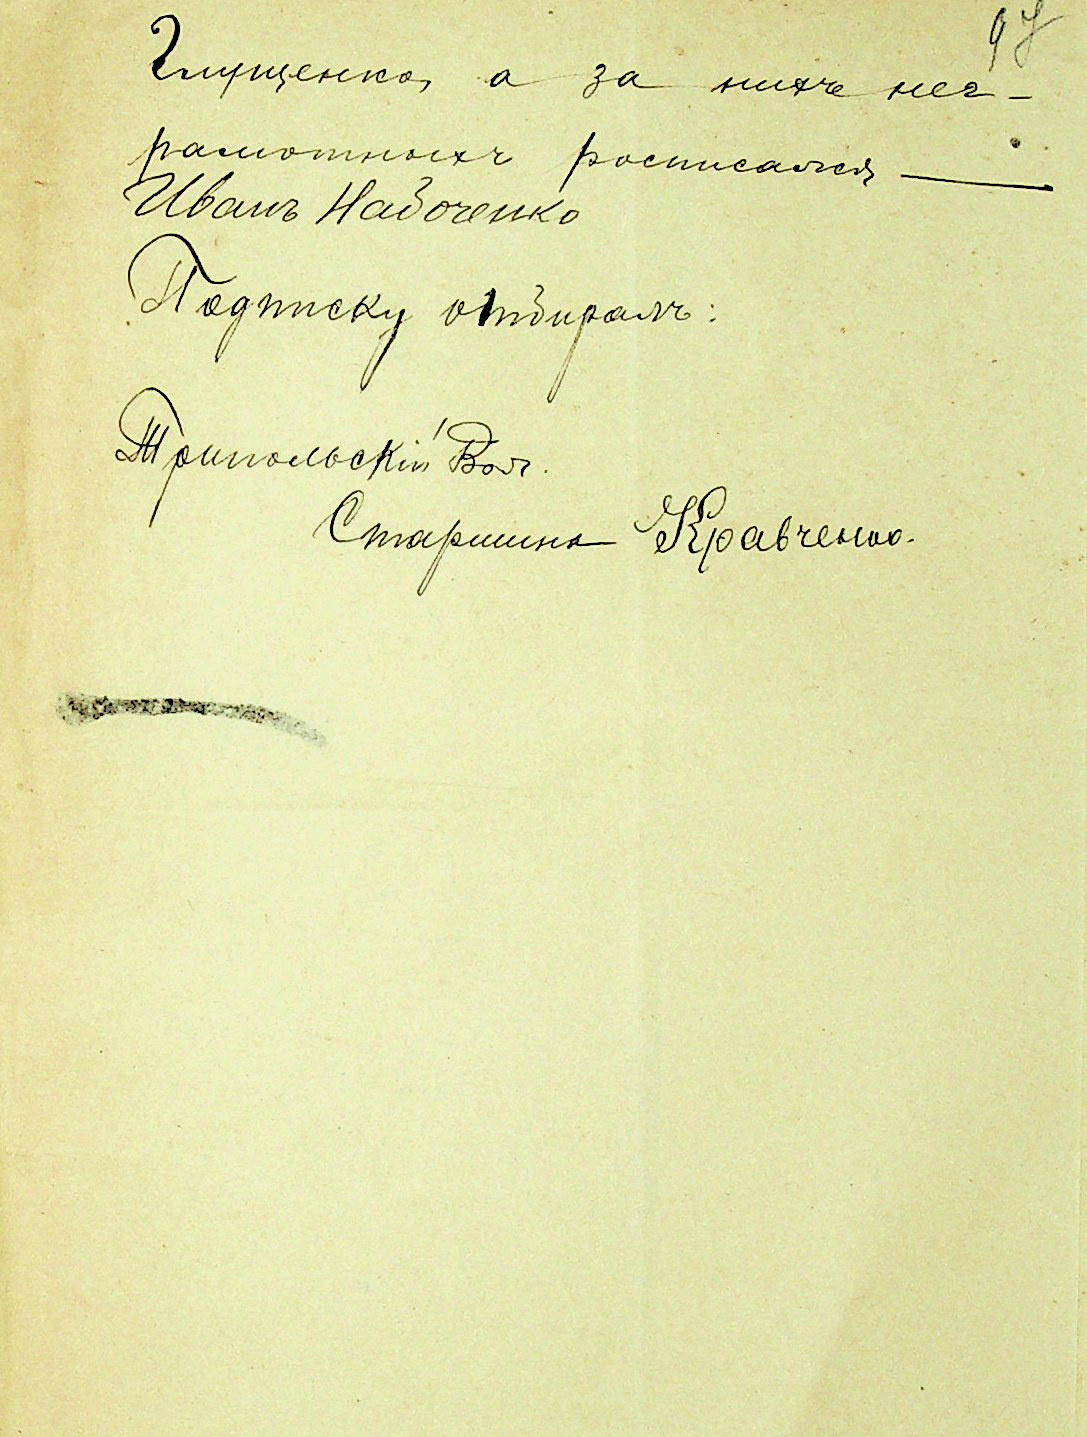 97
Глущенко, а за нихъ нег-
рамотныхъ росписался
Иванъ Набоченко
Подписку отбиралъ:
Трипольскій Вол.
Старшина Кравченко.